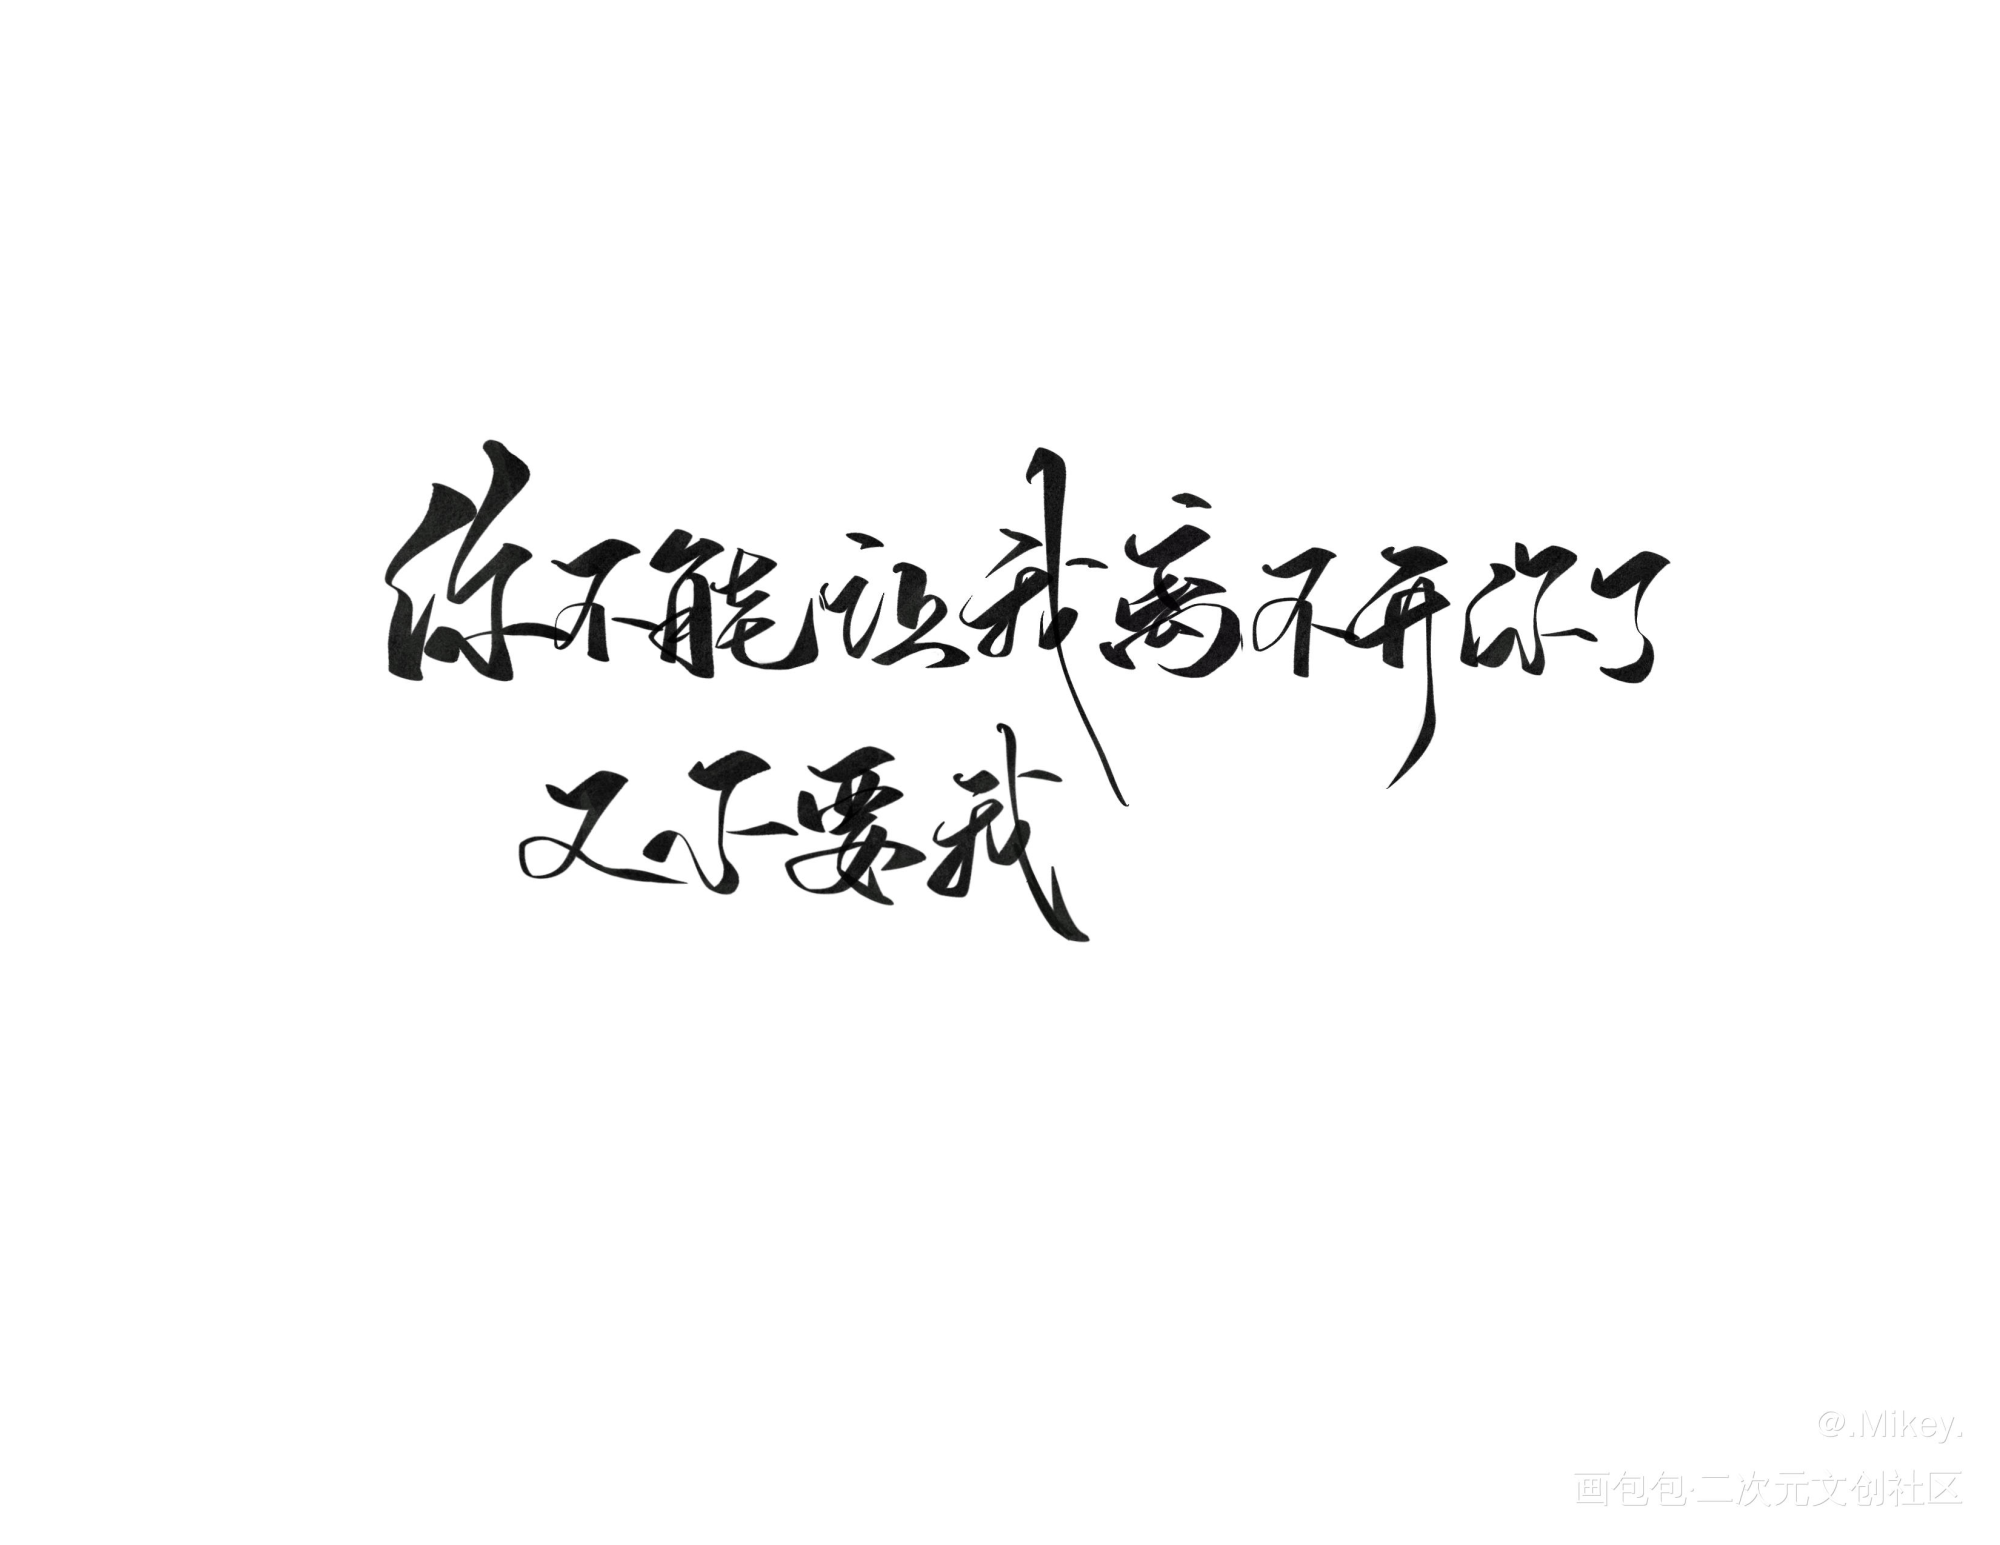 你不能让我离不开你了
又不要我
@.Mikey.
画包包·二次元文创社区